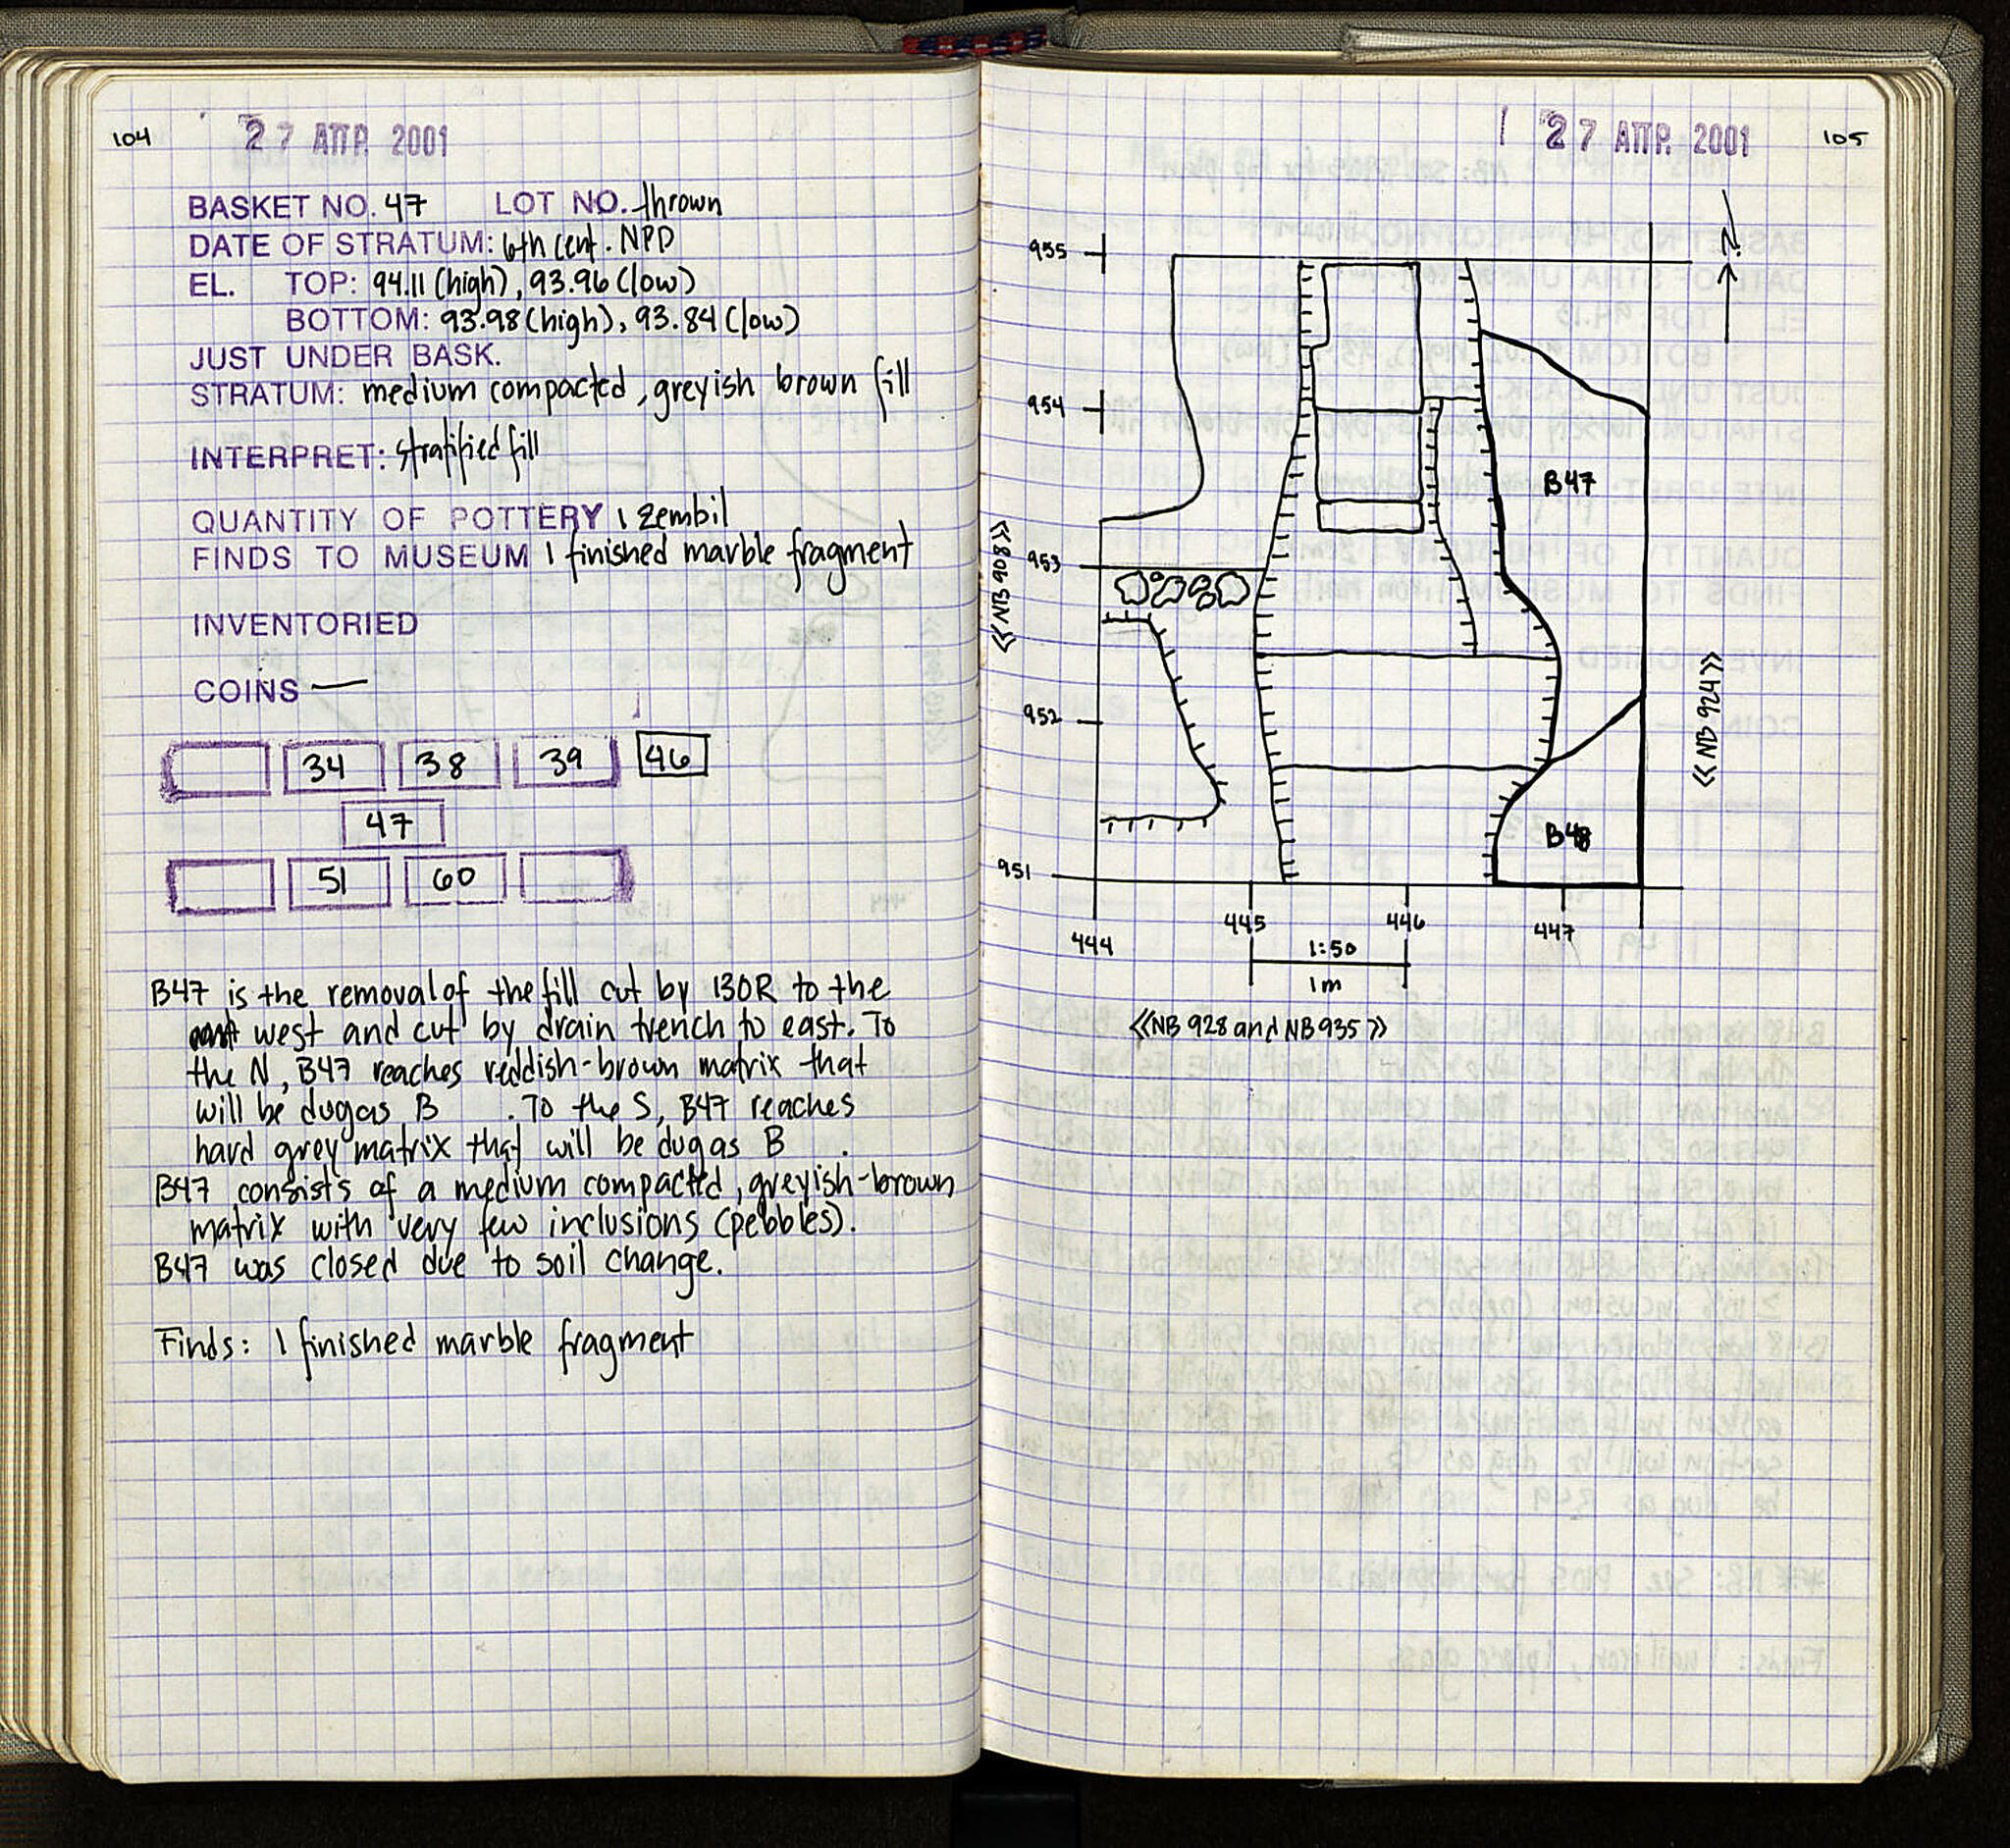 104
27 ΑΠΡ. 2001
BASKET NO. 47 LOT NO. thrown
DATE OF STRATUM: 6th cent. NPD
EL. TOP: 94.11 (high), 93.96 (low)
BOTTOM: 93.98 (high), 93.84 (low)
JUST UNDER BASK.
STRATUM: medium compacted, greyish brown fill
INTERPRET: stratified fill
QUANTITY OF POTTERY 1 zembil
FINDS TO MUSEUM 1 finished marble fragment
INVENTORIED
COINS —
34 38 39 46
47
51 60
B47 is the removal of the fill cut by 130R to the
west and cut by drain trench to east. To
the N, B47 reaches reddish-brown matrix that
will be dug as B . To the S, B47 reaches
hard grey matrix that will be dug as B .
B47 consists of a medium compacted, greyish-brown
matrix with very few inclusions (pebbles).
B47 was closed due to soil change.
Finds: 1 finished marble fragment
27 ΑΠΡ. 2001
105
N
955
954
B47
953
<<NB 908>>
952
<<NB 924>>
B48
951
444
445
446
447
1:50
1m
<<NB 928 and NB 935>>